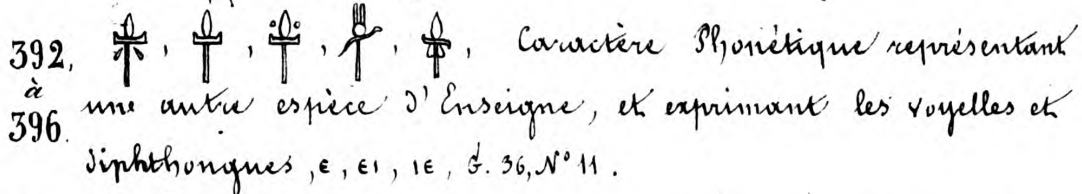 392, à 396. , , , , , Caractère Phonétique représentant
une autre espèce d'Enseigne, et exprimant les voyelles et
diphthongues, ⲉ, ⲉⲓ, ⲓⲉ, G. 36, N° 11.